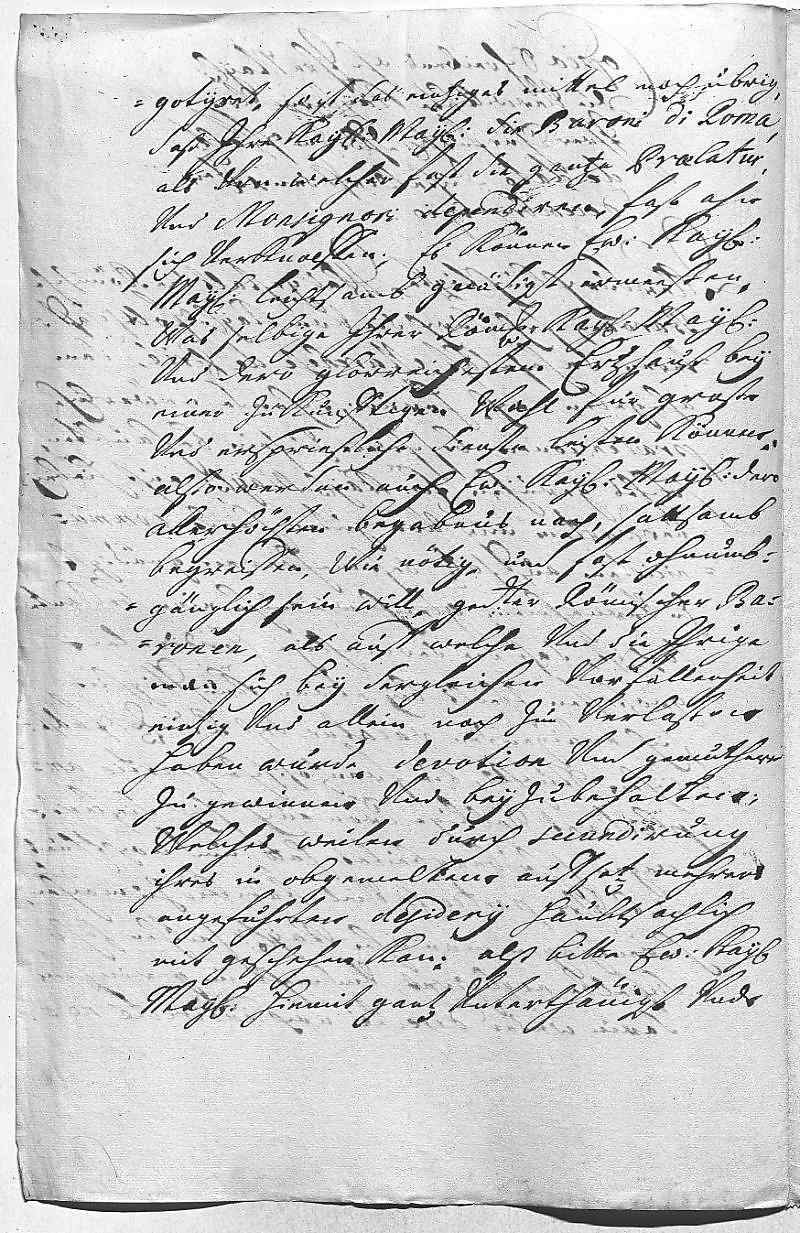 =gotyret, seyet das eintziges mittel noch übrig,
daß Ihre Kayß: Mayß: die Baroni di Roma,
als von welchen fast die gantze Prælatur,
Und Monsignori dependiren, fast an
sich Verknüpffen; Es können Ew: Kayß:
Mayß: leichtsamb gnädigst ermessen,
Was selbige Ihrer Römis: Kayß: Mayß:
Und dero glorreichesten Ertzhauß bey
einer zukünfftigen Wahl für große
Und ersprießliche dienste leisten können,
also werden auch Ew: Kayß: Mayß: dero
allerhöchsten begabnus nach, sattsamb
begreiffen, Wie nötig und fast ohnumb=
=gänglich sein will, gedter Römischer Ba=
=ronen, als auff welche Und die Ihrige
man sich bey dergleichen Vorfallenheit
eintzig Und allein noch zu Verlassen
haben würde, devotion Und gemüther
zu gewinnen Und beyzubehalten;
Welches weilen durch secundirung
ihres in obgemelten auffsatz mehrers
angeführten desiderij haubtsachlich
mit geschehen kan; alß bitte Ew: Kayß
Mayß: hiemit gantz Unterthänigst Und